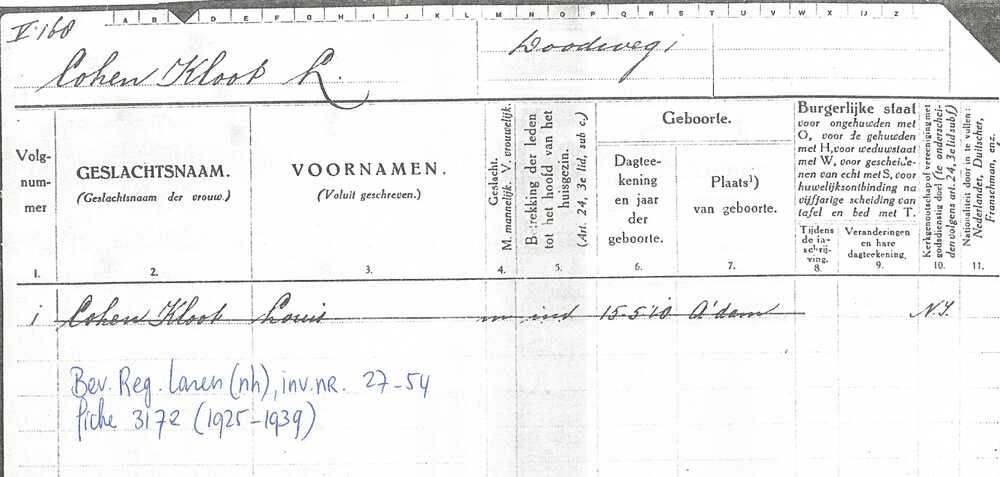 A B C D E F G H I J K L M N O P Q R S T U V W X IJ Z
V.168
Doodweg 1
Cohen Kloot L.
Volg-
num-
mer
1.
GESLACHTSNAAM.
(Geslachtsnaam der vrouw.)
2.
VOORNAMEN.
(Voluit geschreven.)
3.
Geslacht.
M. mannelijk. V. vrouwelijk.
4.
Betrekking der leden
tot het hoofd van het
huisgezin.
(Art. 24, 3e lid, sub c.)
5.
Geboorte.
Dagtee-
kening
en jaar
der
geboorte.
6.
Plaats¹)
van geboorte.
7.
Burgerlijke staat
voor ongehuwden met
O, voor de gehuwden
met H, voor weduwstaat
met W, voor gescheide-
nen van echt met S, voor
huwelijksontbinding na
vijfjarige scheiding van
tafel en bed met T.
Tijdens
de in-
schrij-
ving.
8.
Veranderingen
en hare
dagteekening.
9.
Kerkgenootschap of vereeniging met
godsdienstig doel (te onderschei-
den volgens art. 24, 3e lid sub f)
10.
Nationaliteit door in te vullen:
Nederlander, Duitscher,
Franschman, enz.
11.
1 Cohen Kloot Louis m ind 15-5-'10 A'dam N.I.
Bev. Reg. Laren (nh), inv.nr. 27-54
fiche 3172 (1925-1939)